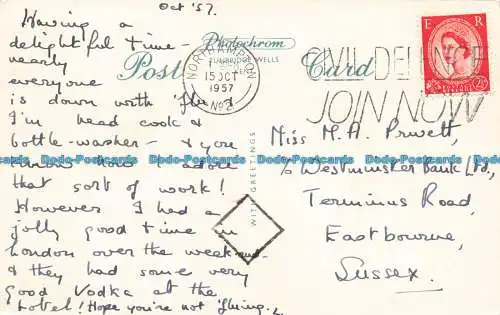 Oct '57.
Having a
delightful time -
nearly
everyone
is down with 'flu &
I'm head cook &
bottle-washer - & you
know how I adore
that sort of work!
However I had a
jolly good time in
London over the weekend
& they had some very
good Vodka at the
hotel! Hope you're not 'fluing.
Photochrom
TUNBRIDGE WELLS
Post Card
NORTHAMPTON
15 OCT
1957
No 2
CIVIL DEFENCE
JOIN NOW
E R
POSTAGE REVENUE
2½D
WITH GREETINGS
Miss M. A. Prwett,
c/o Westminster Bank Ltd.,
Terminus Road,
Eastbourne,
Sussex.
Dado-Postcards Dado-Postcards Dado-Postcards Dado-Postcards Dado-Postcards